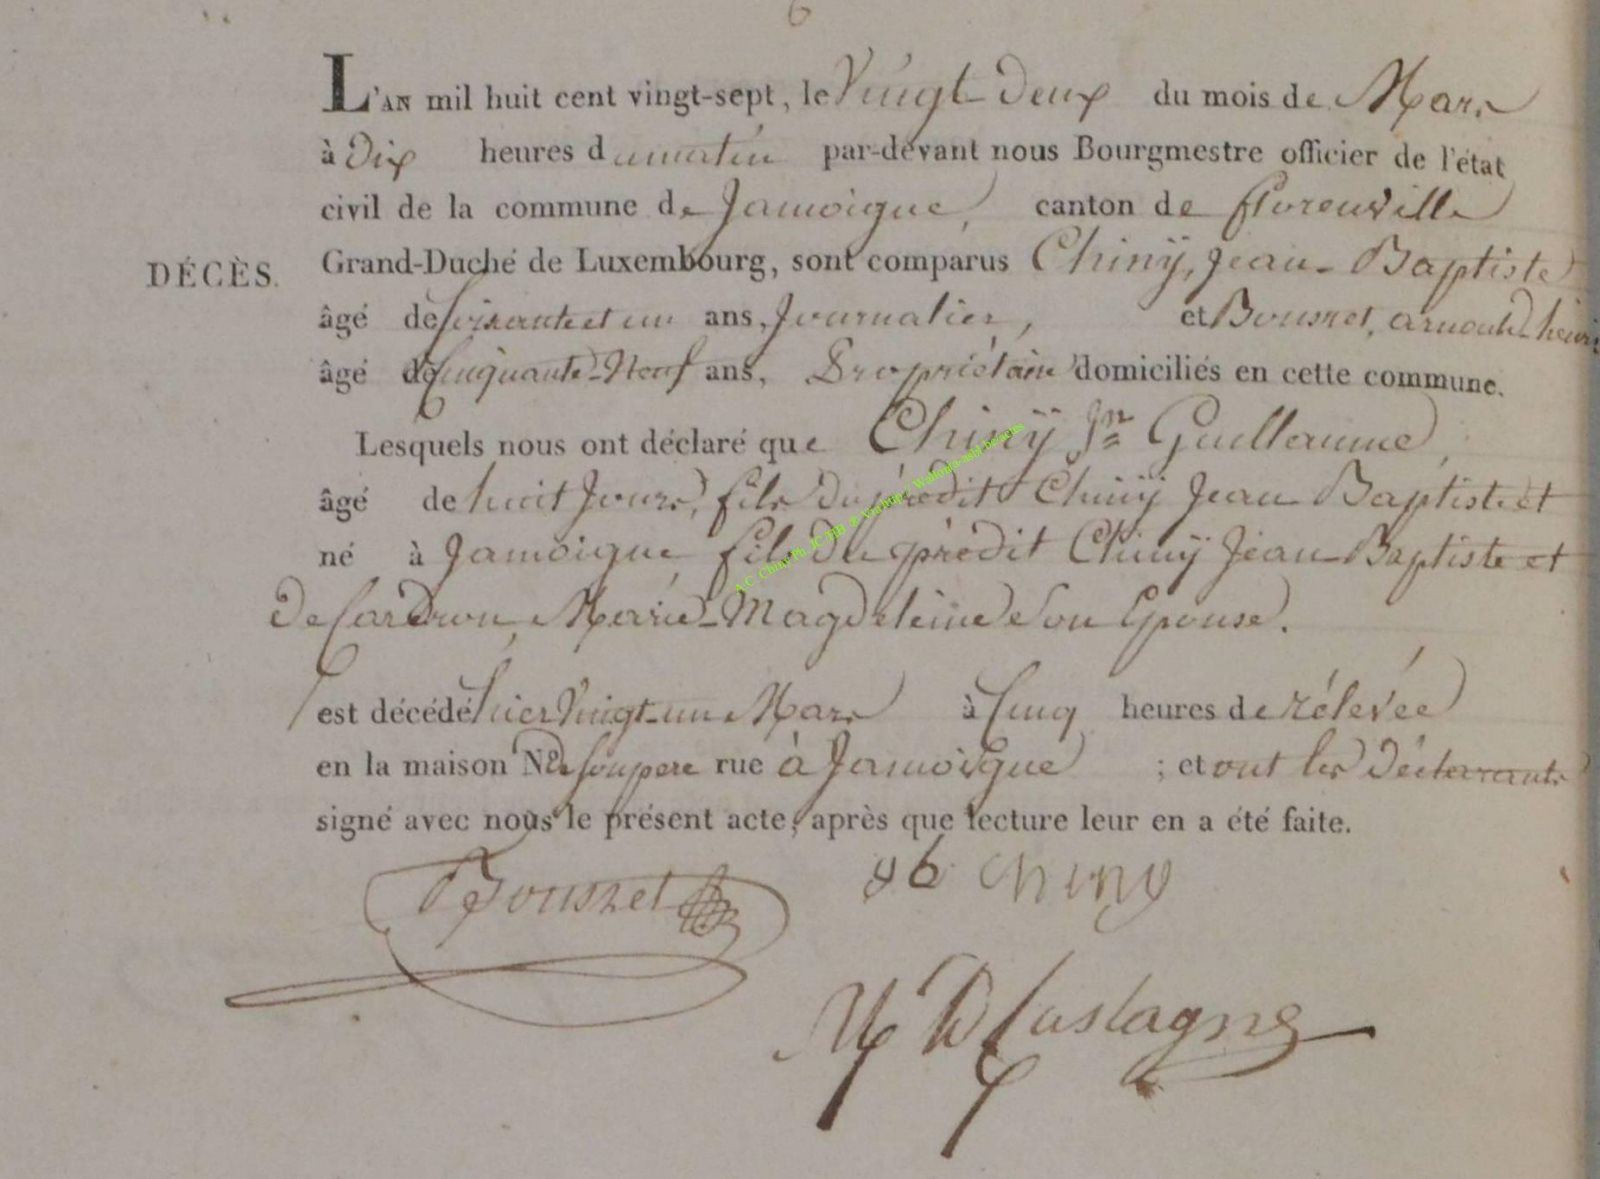 6
L'AN mil huit cent vingt-sept, le Vingt-Deux du mois de Mars
à Dix heures du matin par-devant nous Bourgmestre officier de l'état
civil de la commune de Jamoigne, canton de florenville
DÉCÈS. Grand-Duché de Luxembourg, sont comparus Chinÿ, Jean-Baptiste
âgé de soixante et un ans, Journalier, et Bousret, arnould-henri
âgé de Cinquante-Neuf ans, Propriétaire domiciliés en cette commune.
Lesquels nous ont déclaré que Chinÿ Jn Guillaume,
âgé de huit Jours, fils du prédit Chinÿ Jean Baptiste et
né à Jamoigne, fils du prédit Chinÿ Jean-Baptiste et
De Cardron, Marie-Magdeleine Son Epouse.
est décédé hier Vingt-un Mars à Cinq heures de rélevée
en la maison No de son pere rue à Jamoigne ; et ont les Déclarants
signé avec nous le présent acte, après que lecture leur en a été faite.
Bousret Chiny